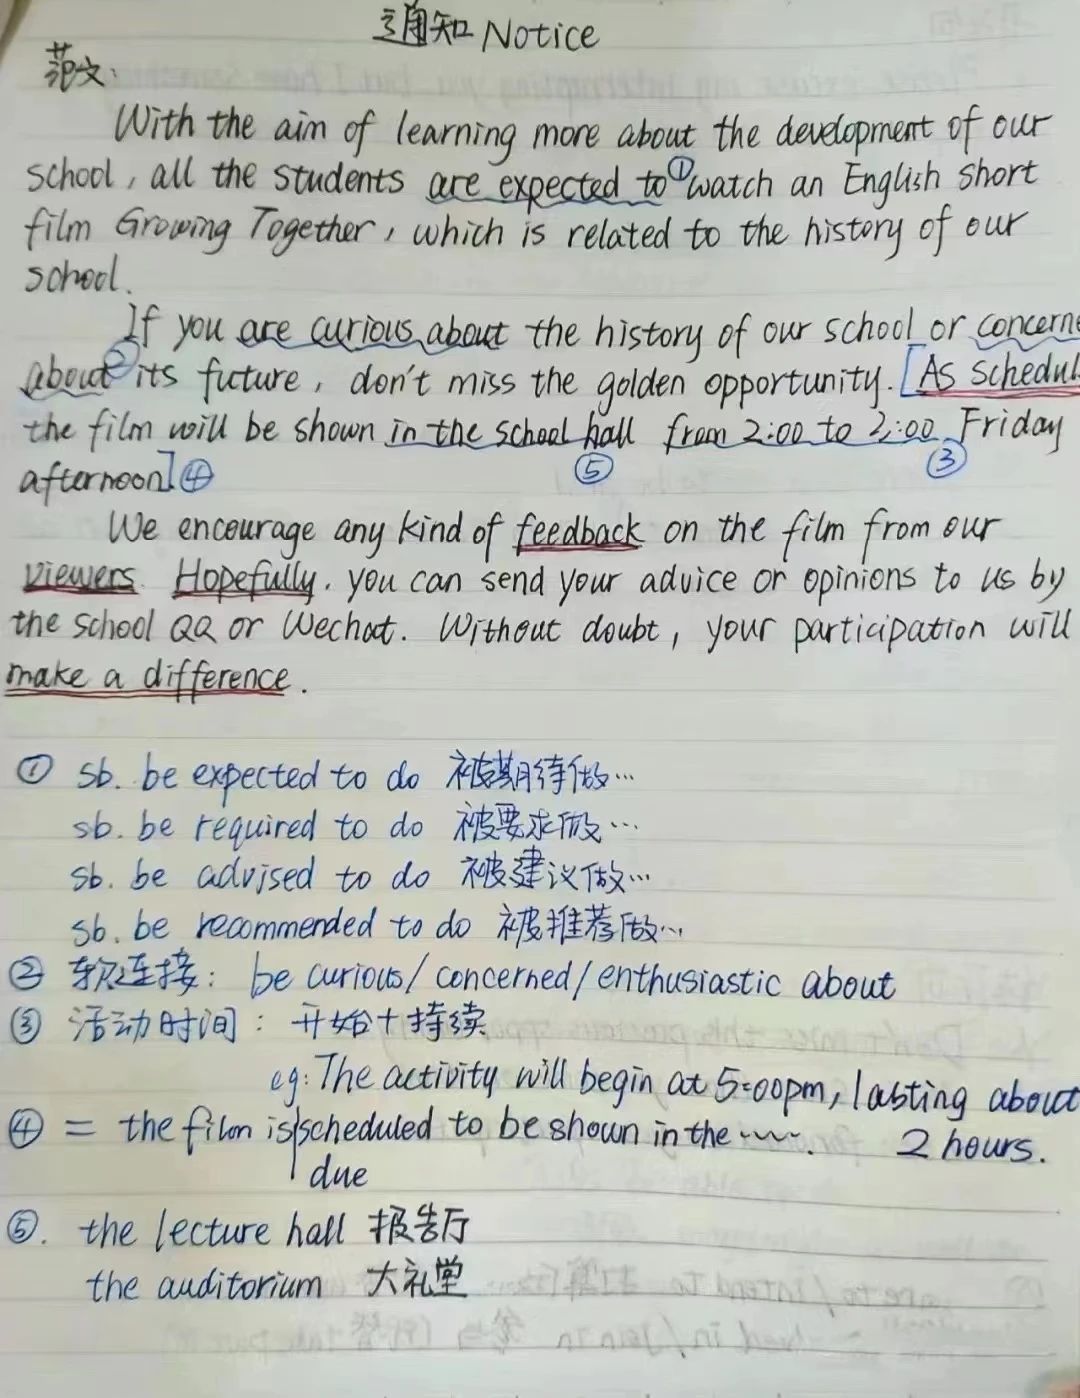 通知 Notice
范文:
With the aim of learning more about the development of our
school, all the students are expected to① watch an English short
film Growing Together, which is related to the history of our
school.
If you are curious about the history of our school or concerne
about② its future, don't miss the golden opportunity. [As schedul
the film will be shown in the school hall from 2:00 to 2:00 Friday
afternoon]④ ⑤ ③
We encourage any kind of feedback on the film from our
viewers. Hopefully, you can send your advice or opinions to us by
the school QQ or Wechat. Without doubt, your participation will
make a difference.
① sb. be expected to do 被期待做…
sb. be required to do 被要求做…
sb. be advised to do 被建议做…
sb. be recommended to do 被推荐做…
② 软连接: be curious/concerned/enthusiastic about
③ 活动时间: 开始+持续
eg: The activity will begin at 5:00pm, lasting about
2 hours.
④ = the film is scheduled to be shown in the …….
due
⑤. the lecture hall 报告厅
the auditorium 大礼堂